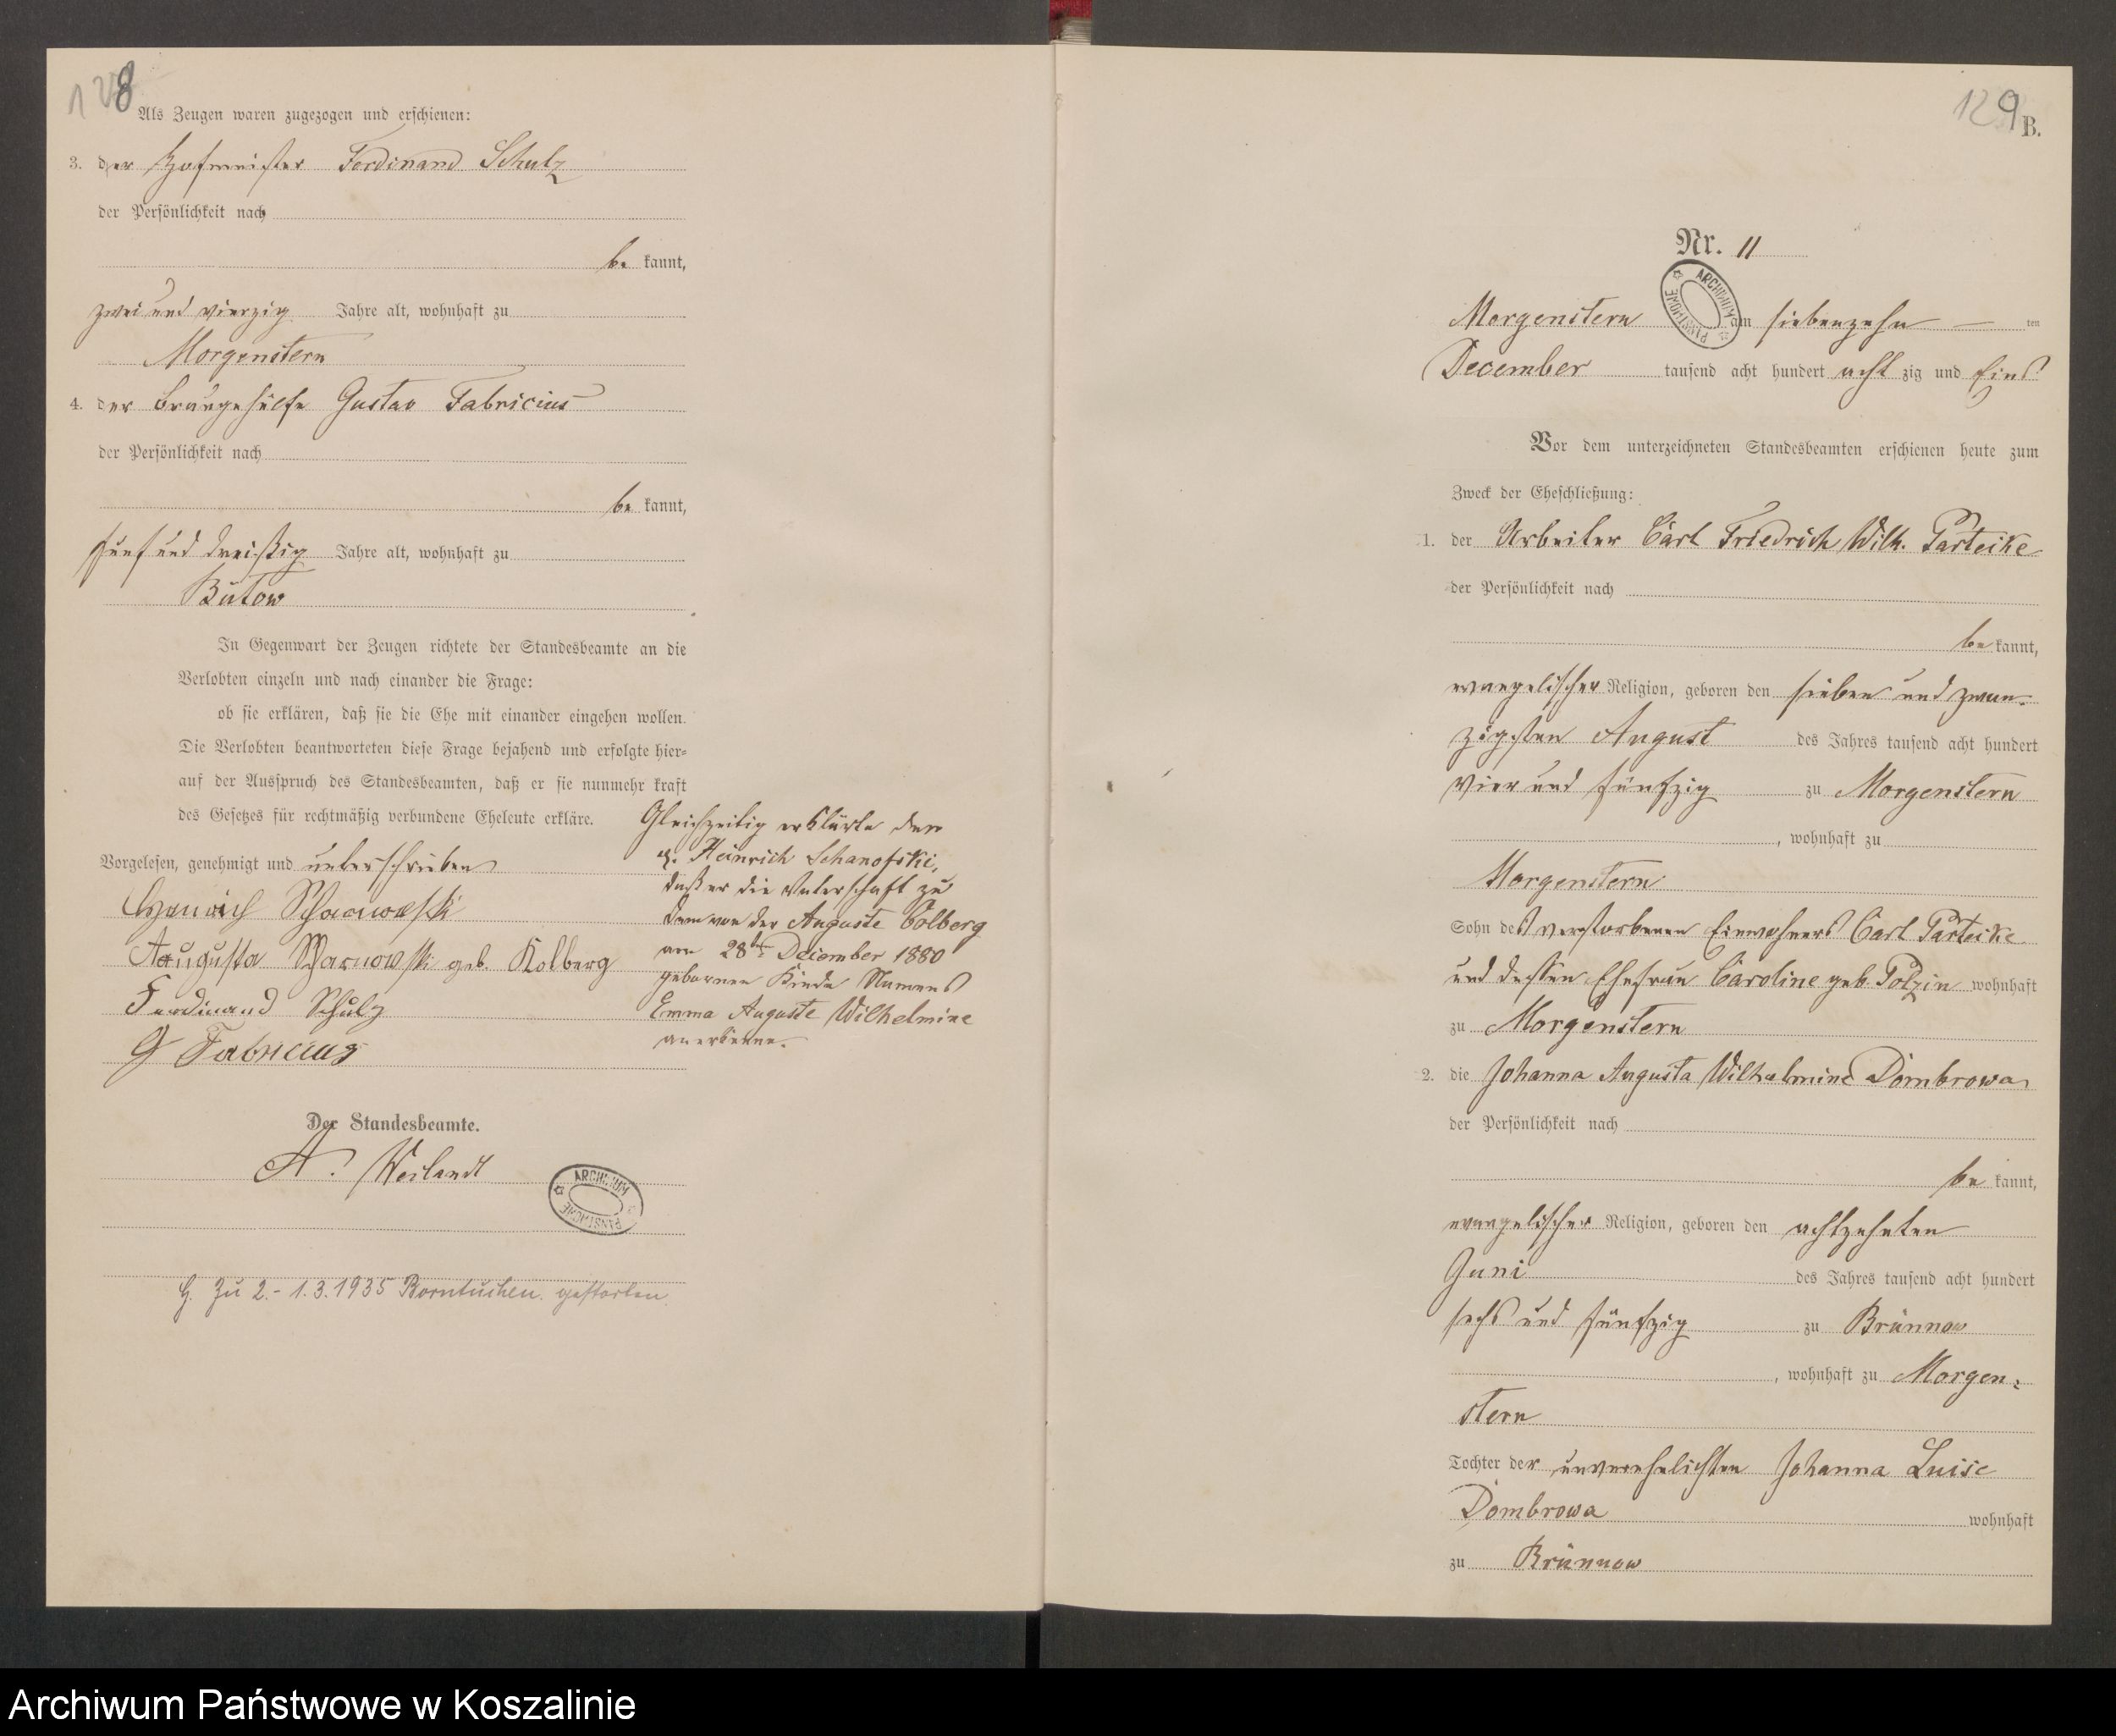 128
Als Zeugen waren zugezogen und erschienen:
3. der Hofmeister Ferdinand Schulz
der Persönlichkeit nach
be kannt,
zwei und vierzig Jahre alt, wohnhaft zu
Morgenstern
4. der Braugehülfe Gustav Fabricius
der Persönlichkeit nach
be kannt,
fünf und dreißig Jahre alt, wohnhaft zu
Bütow
In Gegenwart der Zeugen richtete der Standesbeamte an die
Verlobten einzeln und nach einander die Frage:
ob sie erklären, daß sie die Ehe mit einander eingehen wollen.
Die Verlobten beantworteten diese Frage bejahend und erfolgte hier-
auf der Ausspruch des Standesbeamten, daß er sie nunmehr kraft
des Gesetzes für rechtmäßig verbundene Eheleute erkläre.
Vorgelesen, genehmigt und unterschrieben
Augusta Scharnowski geb. Kolberg
Ferdinand Schulz
G Fabricius
Gleichzeitig erklärte der
Heinrich Schanofski,
daß er die Vaterschaft zu
dem von der Auguste Colberg
am 28ten December 1880
geborenen Kinde Namens
Emma Auguste Wilhelmine
anerkenne.
Der Standesbeamte.
A. Weilandt
ARCHIWUM PAŃSTWOWE
G. Zu 2.- 1.3.1935 Borntuchen gestorben.
129
B.
Nr. 11
ARCHIWUM PAŃSTWOWE
Morgenstern am siebenzehn ten
December tausend acht hundert acht zig und Eins
Vor dem unterzeichneten Standesbeamten erschienen heute zum
Zweck der Eheschließung:
1. der Arbeiter Carl Friedrich Wilh. Parteike
der Persönlichkeit nach
be kannt,
evangelischer Religion, geboren den sieben und zwan-
zigsten August des Jahres tausend acht hundert
vier und fünfzig zu Morgenstern
, wohnhaft zu
Morgenstern
Sohn des verstorbenen Einwohners Carl Parteike
und dessen Ehefrau Caroline geb. Polzin wohnhaft
zu Morgenstern
2. die Johanna Augusta Wilhelmine Dombrowa
der Persönlichkeit nach
be kannt,
evangelischer Religion, geboren den achtzehnten
Juni des Jahres tausend acht hundert
sechs und fünfzig zu Brünnow
, wohnhaft zu Morgen-
stern
Tochter der unverehelichten Johanna Luise
Dombrowa wohnhaft
zu Brünnow
Archiwum Państwowe w Koszalinie